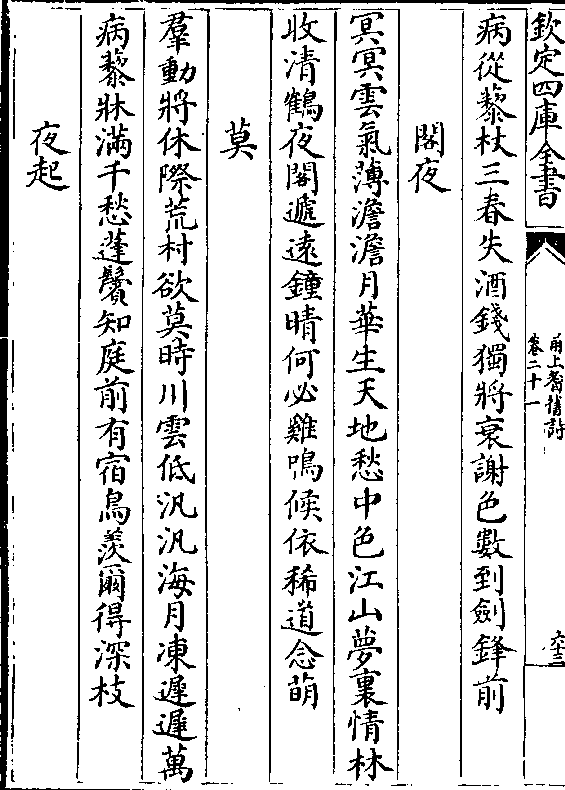 欽定四庫全書
甬上耆舊詩
卷二十一
六十三
病從藜杖三春失酒錢獨將衰謝色數到劍鋒前
閣夜
冥冥雲氣薄澹澹月華生天地愁中色江山夢裏情林
收清鶴夜閣遞遠鐘晴何必雞鳴候依稀道念萌
莫
羣動將休際荒村欲莫時川雲低汎汎海月凍遲遲萬
病藜牀滿千愁蓬鬢知庭前有宿鳥羨爾得深枝
夜起